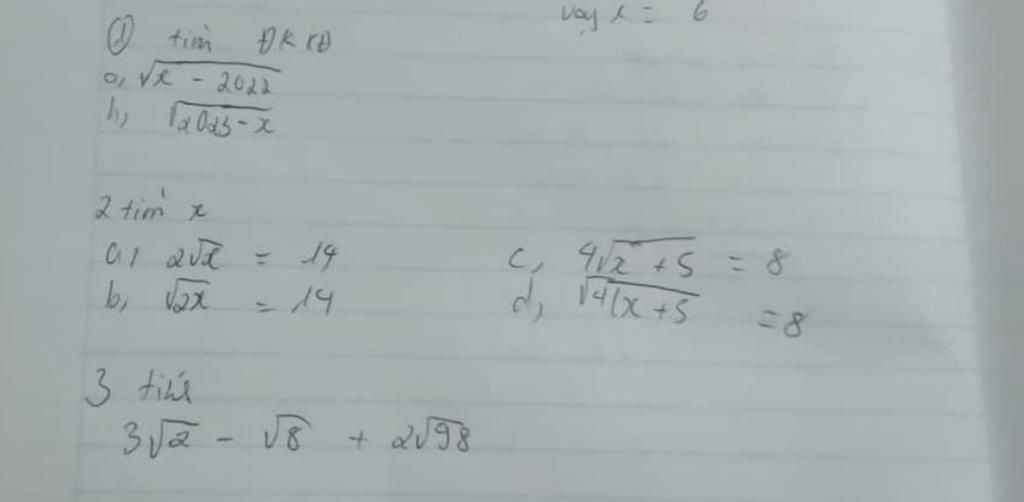 vay x = 6
① tìm ĐKXĐ
a, √x - 2022
b, √2023-x
2 tìm x
a, 2√x = 14
b, √2x = 14
c, 4√x+5 = 8
d, √4(x+5 = 8
3 tính
3√2 - √8 + 2√98